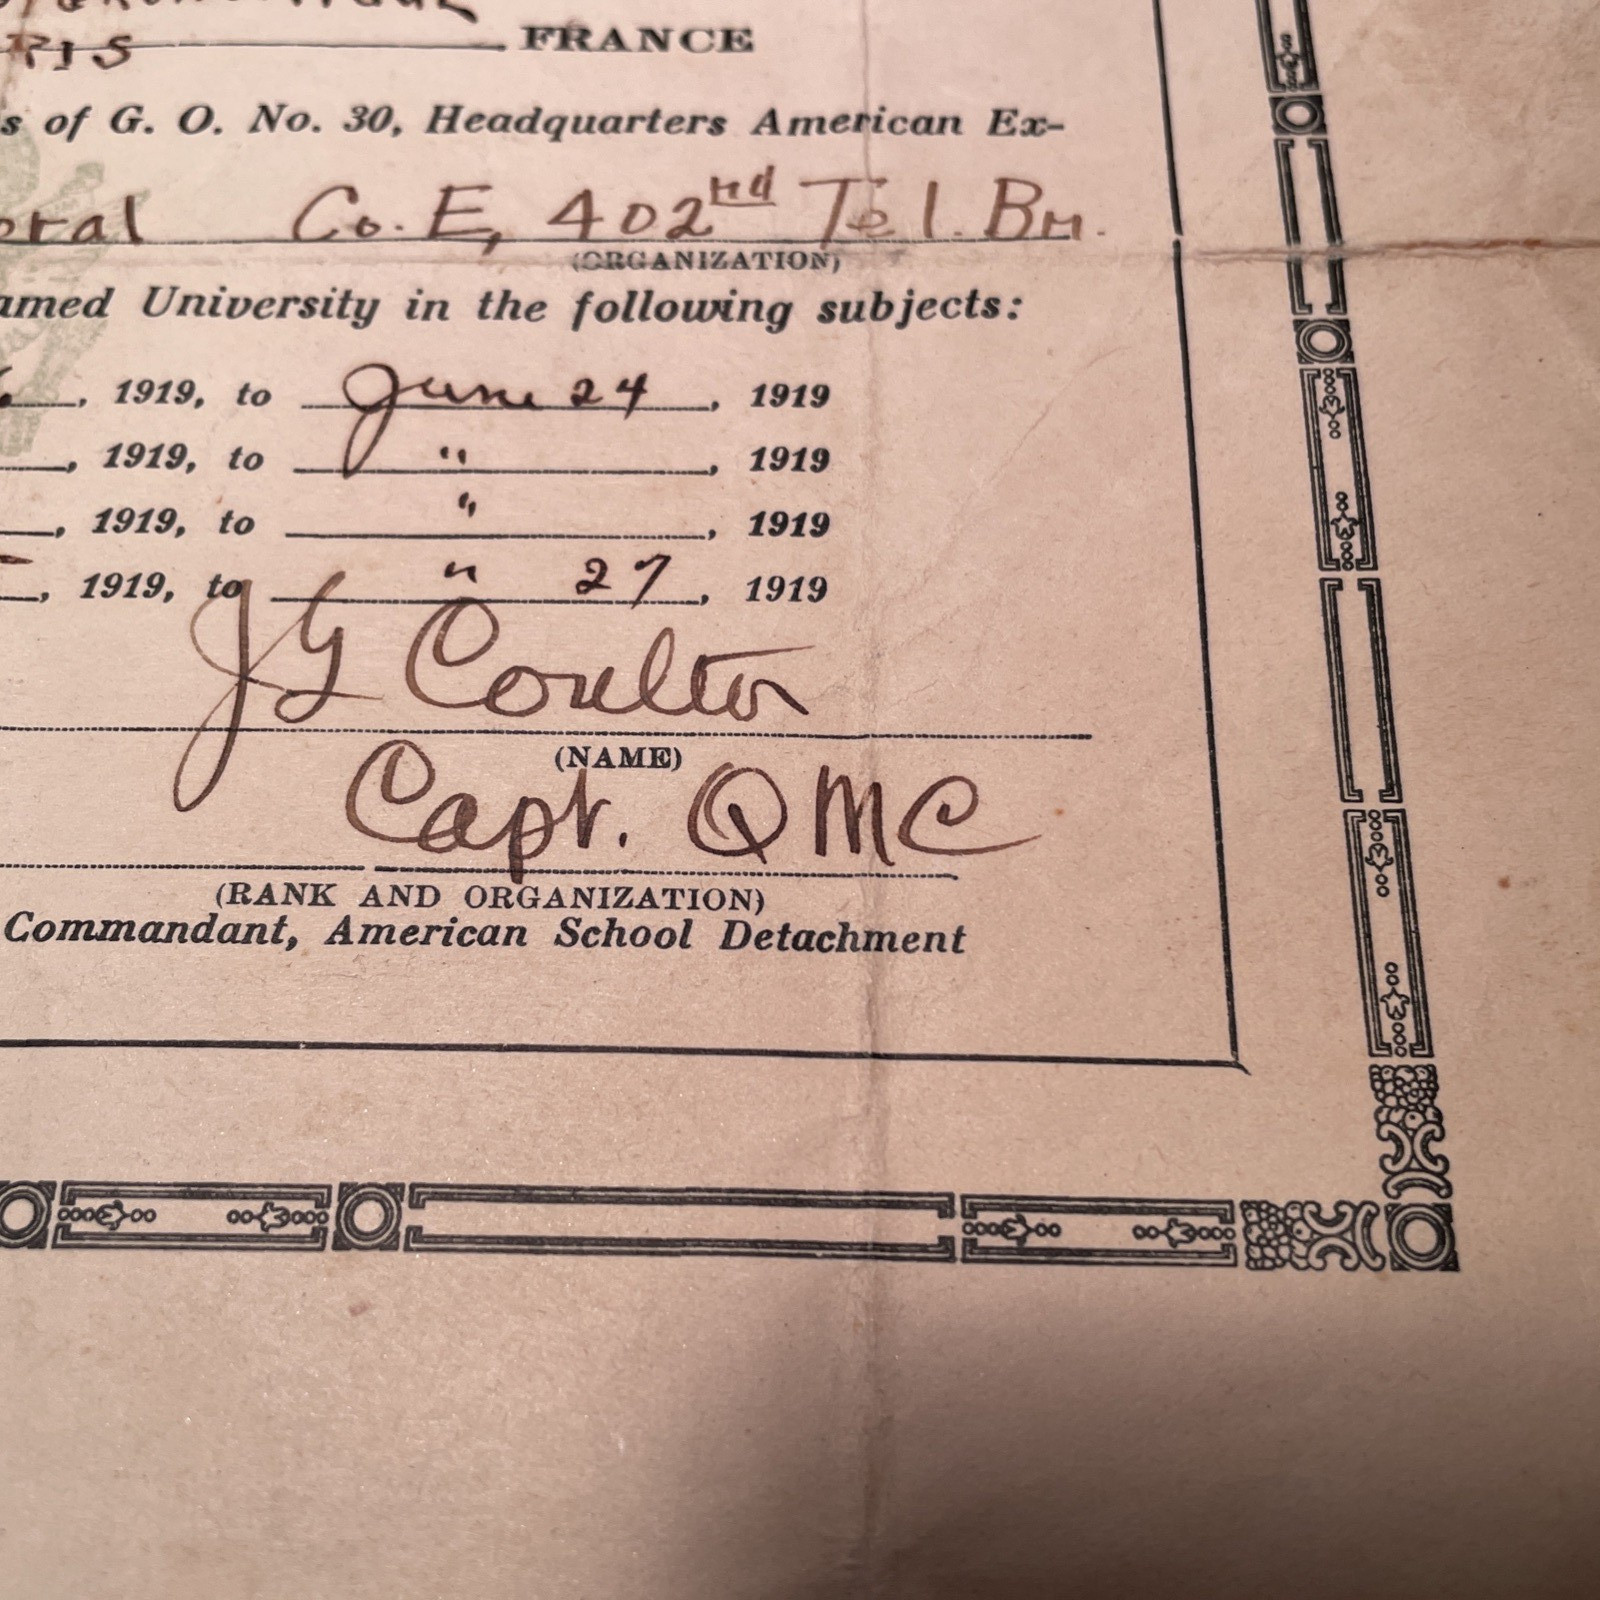 RIS FRANCE
s of G. O. No. 30, Headquarters American Ex-
oral Co. E, 402nd Tel. Bn.
(ORGANIZATION)
amed University in the following subjects:
, 1919, to June 24, 1919
, 1919, to " , 1919
, 1919, to " , 1919
, 1919, to " 27, 1919
J G Coulter
(NAME)
Capt. QMC
(RANK AND ORGANIZATION)
Commandant, American School Detachment